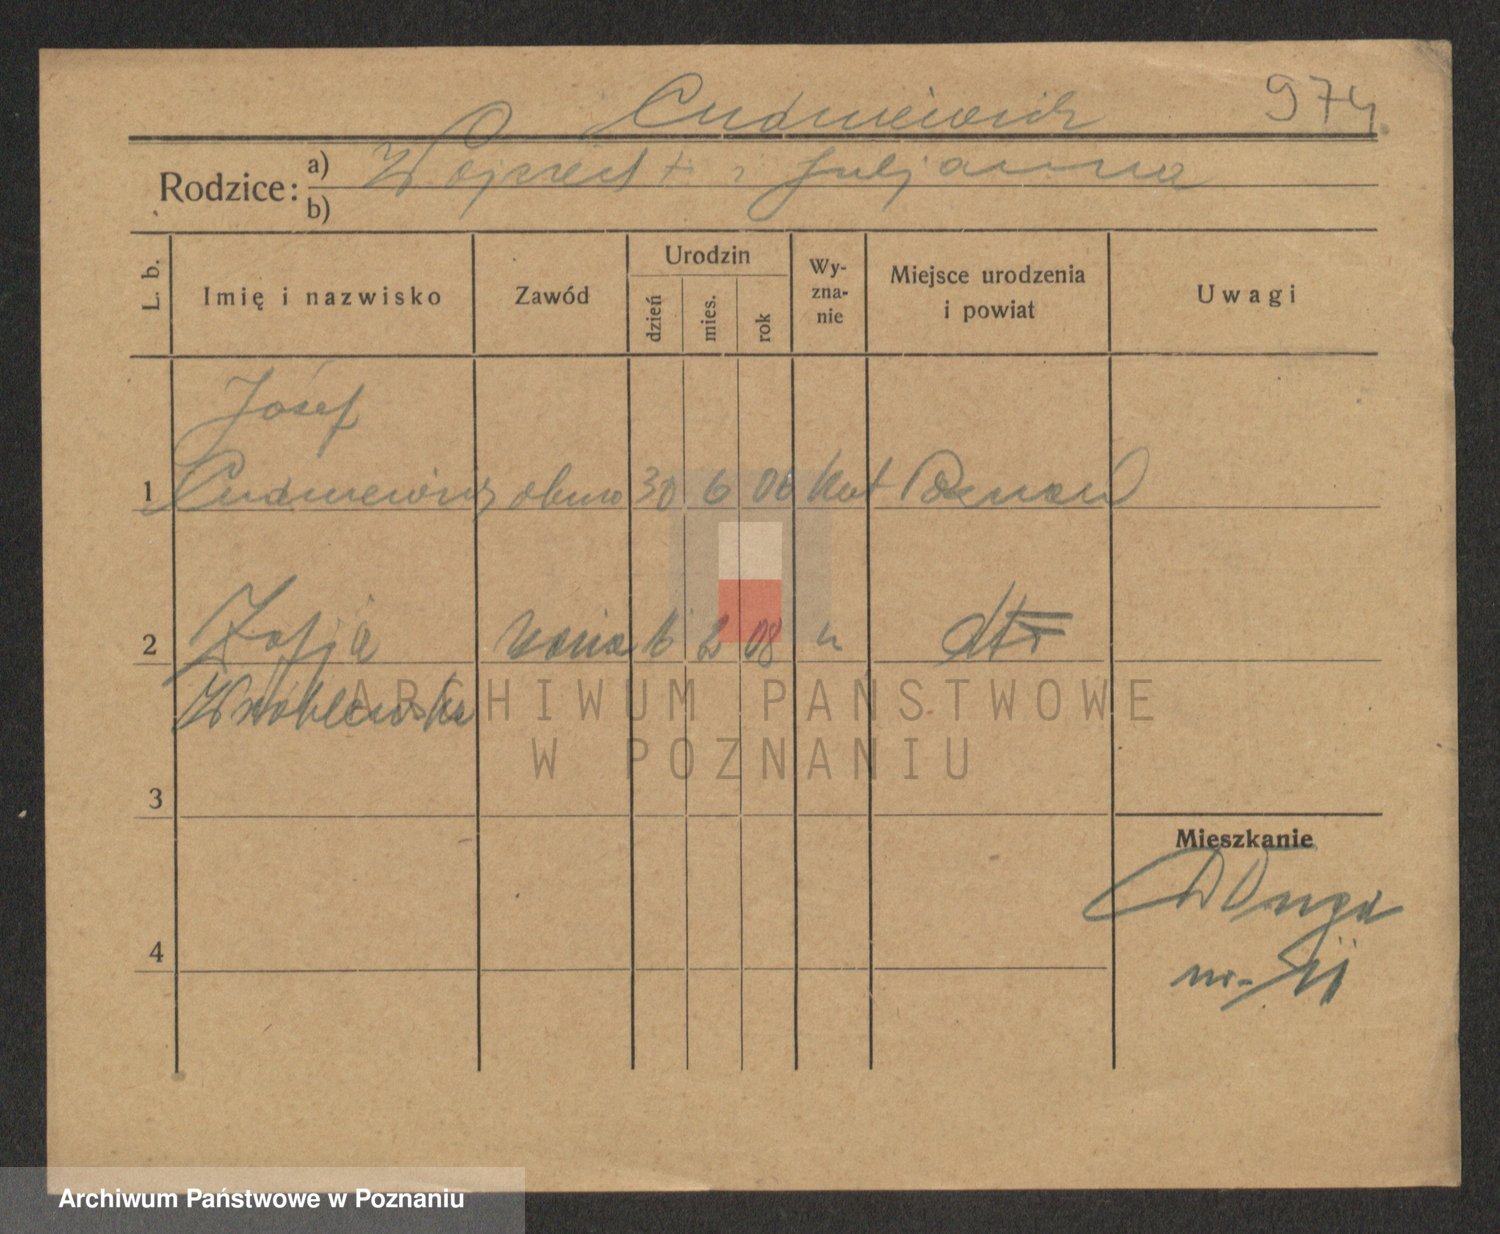 Cudniewicz 974
Rodzice: a) Wojciech + i Juljanna
b)
L. b. Imię i nazwisko Zawód Urodzin dzień mies. rok Wy-zna-nie Miejsce urodzenia i powiat Uwagi
Józef
1 Cudniewicz obuw 30 6 06 kat Poznań
2 Zofja żona 16 2 08 " dtto
Wróblewska
ARCHIWUM PAŃSTWOWE
W POZNANIU
3
Mieszkanie
Długa
4
nr.
Archiwum Państwowe w Poznaniu